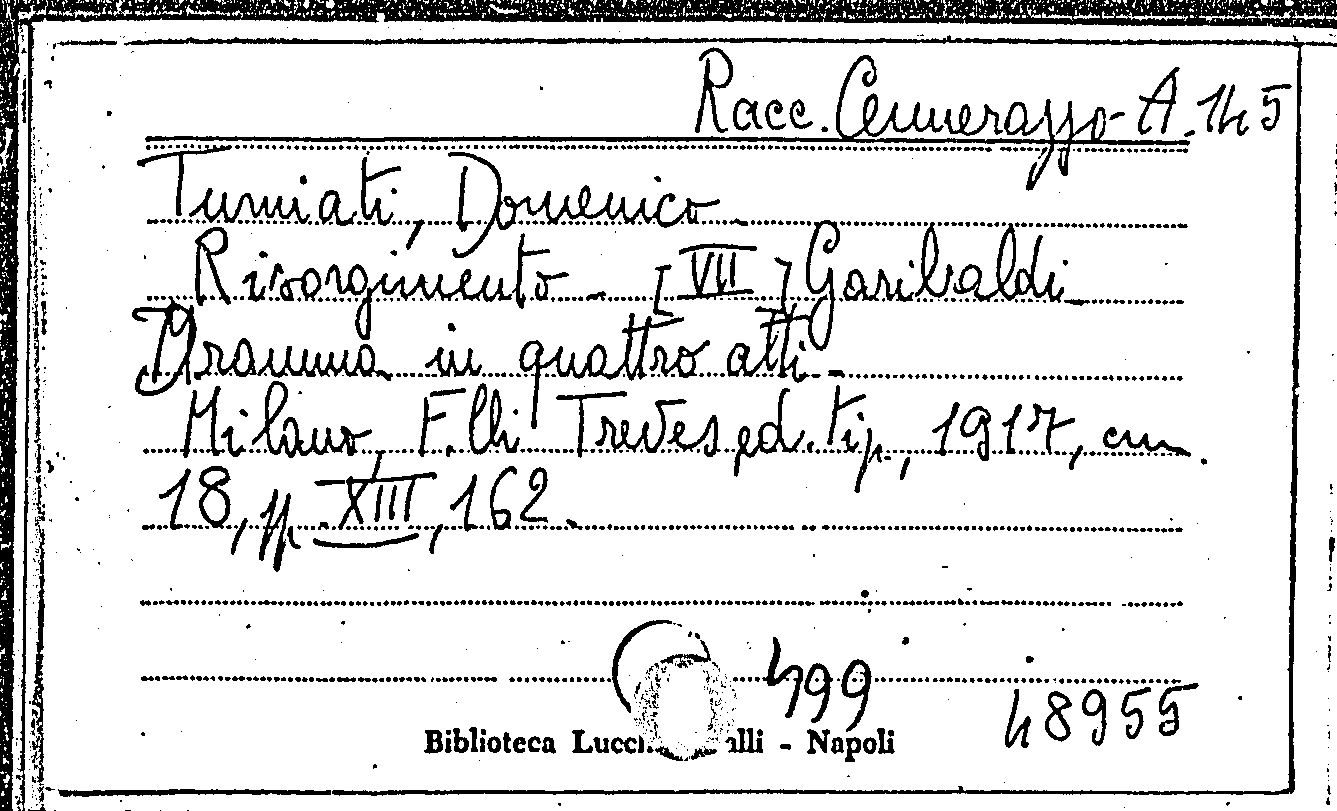 Racc. Cennerazzo-A.145
Tumiati, Domenico
Risorgimento - [VII] Garibaldi
Dramma in quattro atti -
Milano, F.lli Treves, ed. tip., 1917, cm.
18, pp. XIII, 162.
499
48955
Biblioteca - Napoli